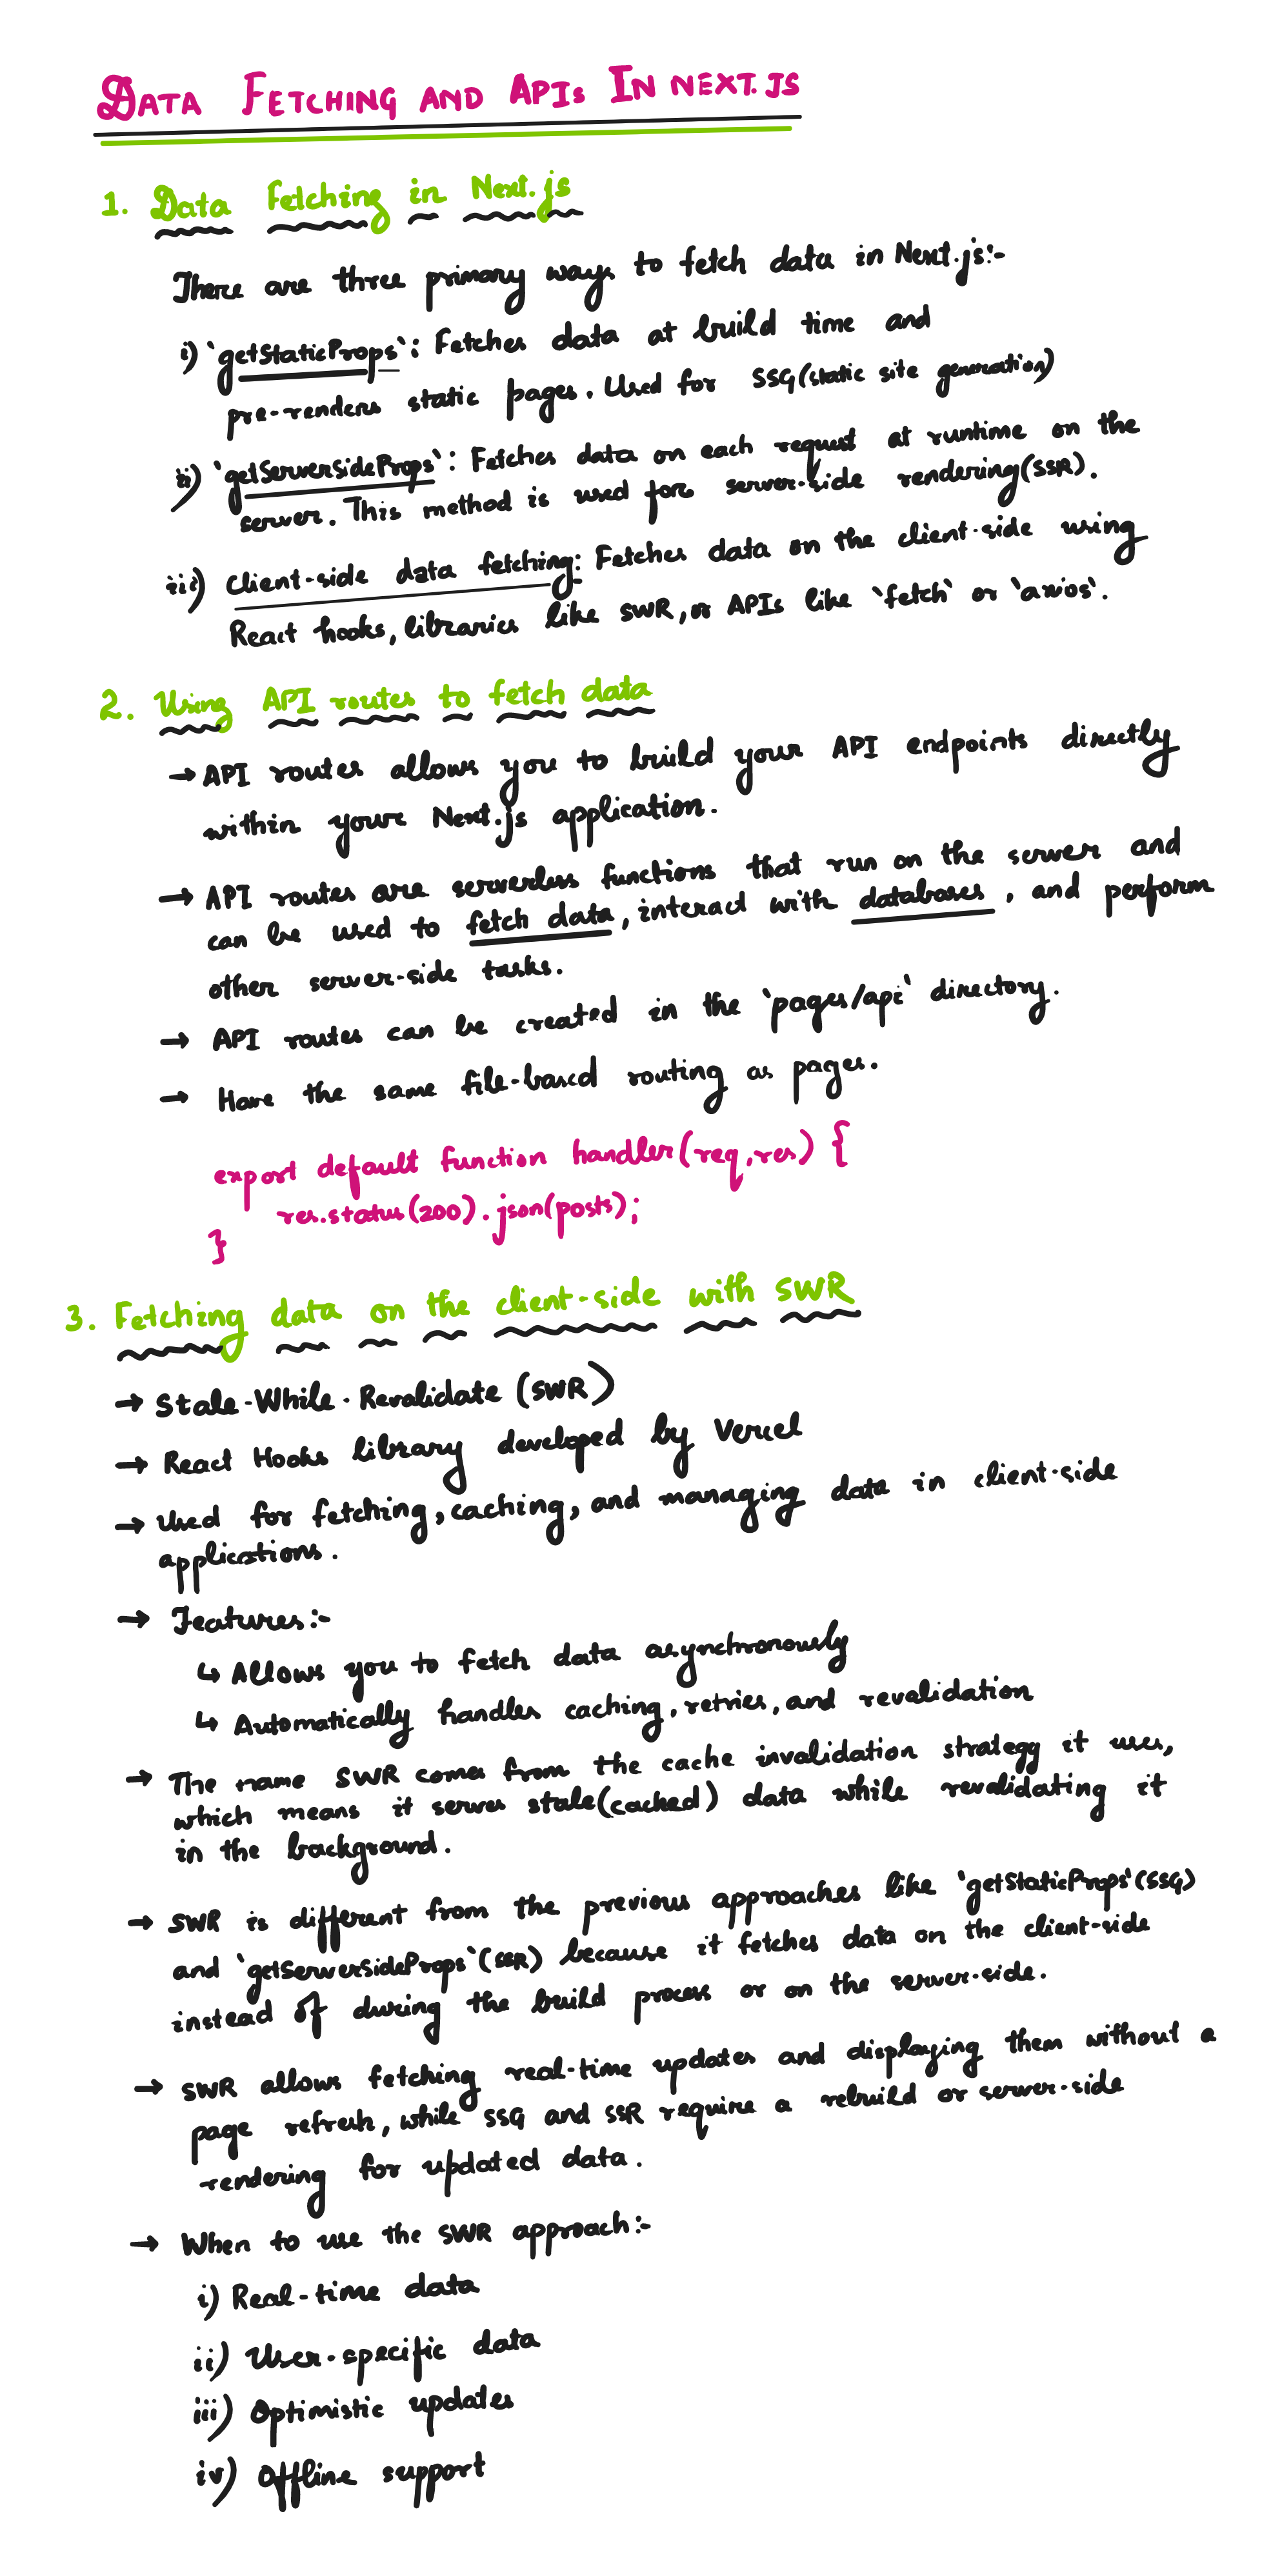 DATA FETCHING AND APIs IN NEXT.JS
1. Data Fetching in Next.js
There are three primary ways to fetch data in Next.js:-
i) `getStaticProps`: Fetches data at build time and
pre-renders static pages. Used for SSG(static site generation)
ii) `getServerSideProps`: Fetches data on each request at runtime on the
server. This method is used for server-side rendering(SSR).
iii) Client-side data fetching: Fetches data on the client-side using
React hooks, libraries like SWR, or APIs like `fetch` or `axios`.
2. Using API routes to fetch data
→ API routes allows you to build your API endpoints directly
within your Next.js application.
→ API routes are serverless functions that run on the server and
can be used to fetch data, interact with databases, and perform
other server-side tasks.
→ API routes can be created in the `pages/api` directory.
→ Have the same file-based routing as pages.
export default function handler(req, res) {
res.status(200).json(posts);
}
3. Fetching data on the client-side with SWR
→ Stale-While-Revalidate (SWR)
→ React Hooks library developed by Vercel
→ Used for fetching, caching, and managing data in client-side
applications.
→ Features:-
↳ Allows you to fetch data asynchronously
↳ Automatically handles caching, retries, and revalidation
→ The name SWR comes from the cache invalidation strategy it uses,
which means it serves stale(cached) data while revalidating it
in the background.
→ SWR is different from the previous approaches like `getStaticProps`(SSG)
and `getServerSideProps`(SSR) because it fetches data on the client-side
instead of during the build process or on the server-side.
→ SWR allows fetching real-time updates and displaying them without a
page refresh, while SSG and SSR require a rebuild or server-side
rendering for updated data.
→ When to use the SWR approach:-
i) Real-time data
ii) User-specific data
iii) Optimistic updates
iv) Offline support